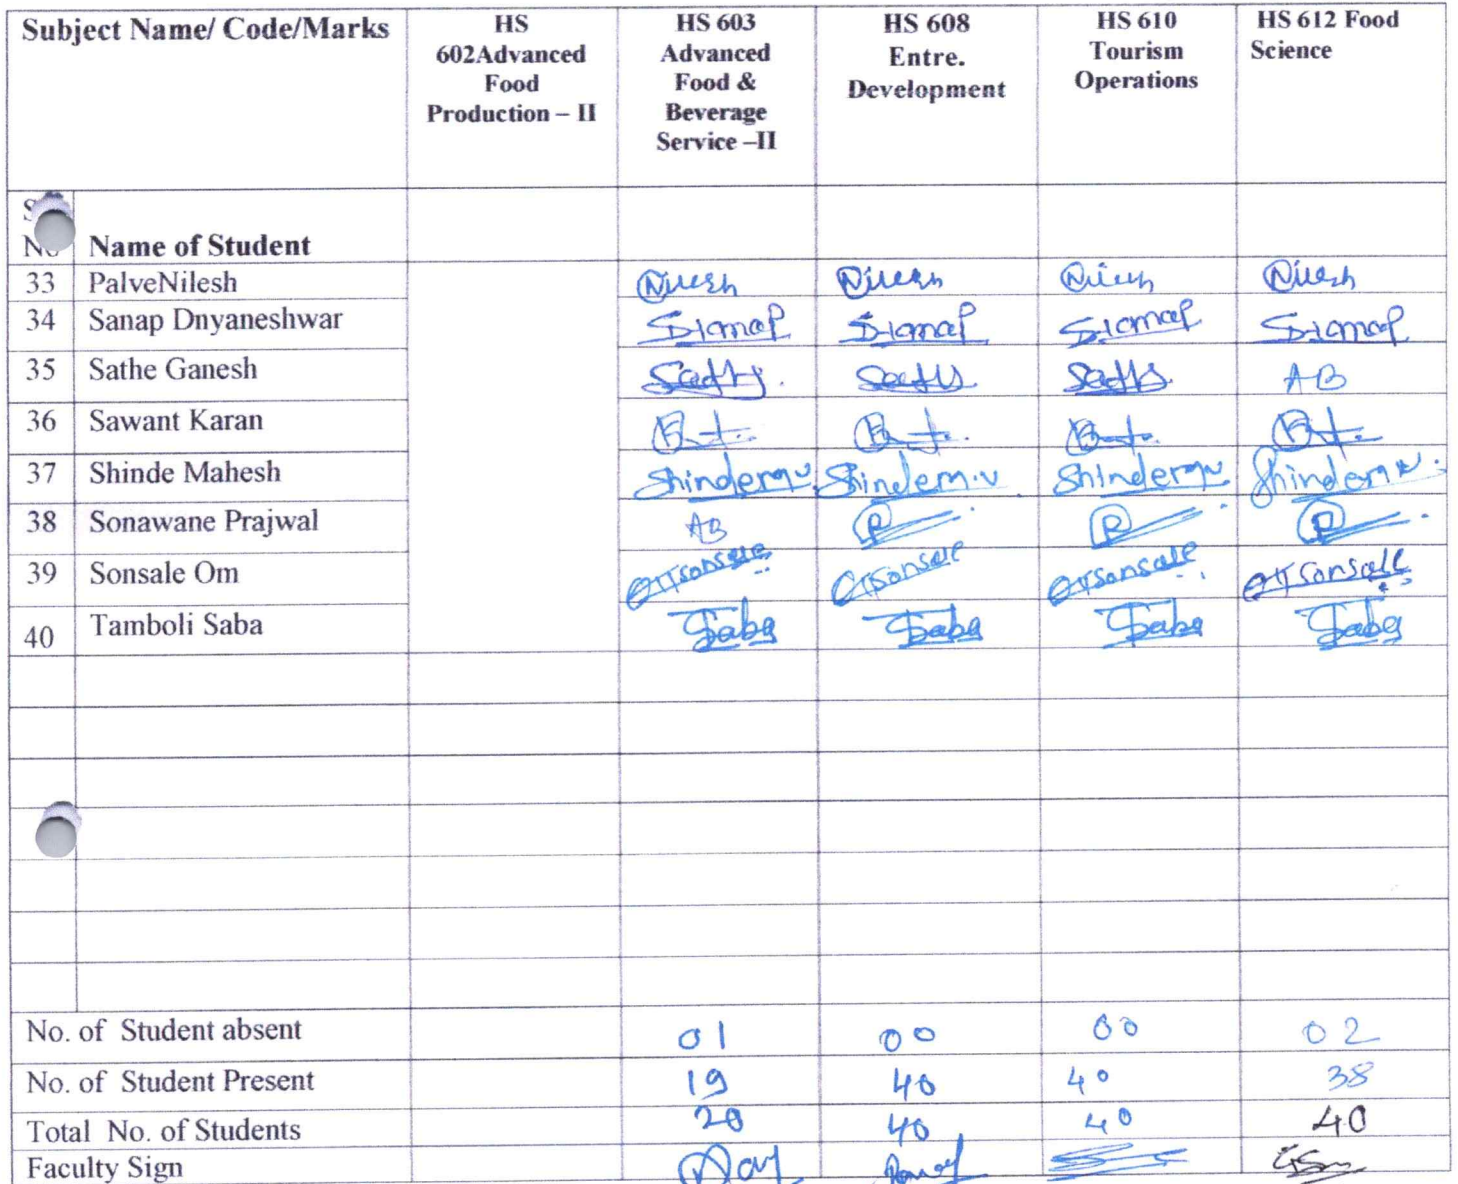 Subject Name/ Code/Marks
HS
602Advanced
Food
Production – II
HS 603
Advanced
Food &
Beverage
Service –II
HS 608
Entre.
Development
HS 610
Tourism
Operations
HS 612 Food
Science
Name of Student
33 PalveNilesh Nilesh Nilesh Nilesh Nilesh
34 Sanap Dnyaneshwar
35 Sathe Ganesh AB
36 Sawant Karan
37 Shinde Mahesh Shindem.v Shindem.v Shindem.v Shindem.v
38 Sonawane Prajwal AB P P P
39 Sonsale Om Sonsale Sonsale Sonsale Sonsale
40 Tamboli Saba Saba Saba Saba Saba
No. of Student absent 01 00 00 02
No. of Student Present 19 40 40 38
Total No. of Students 20 40 40 40
Faculty Sign